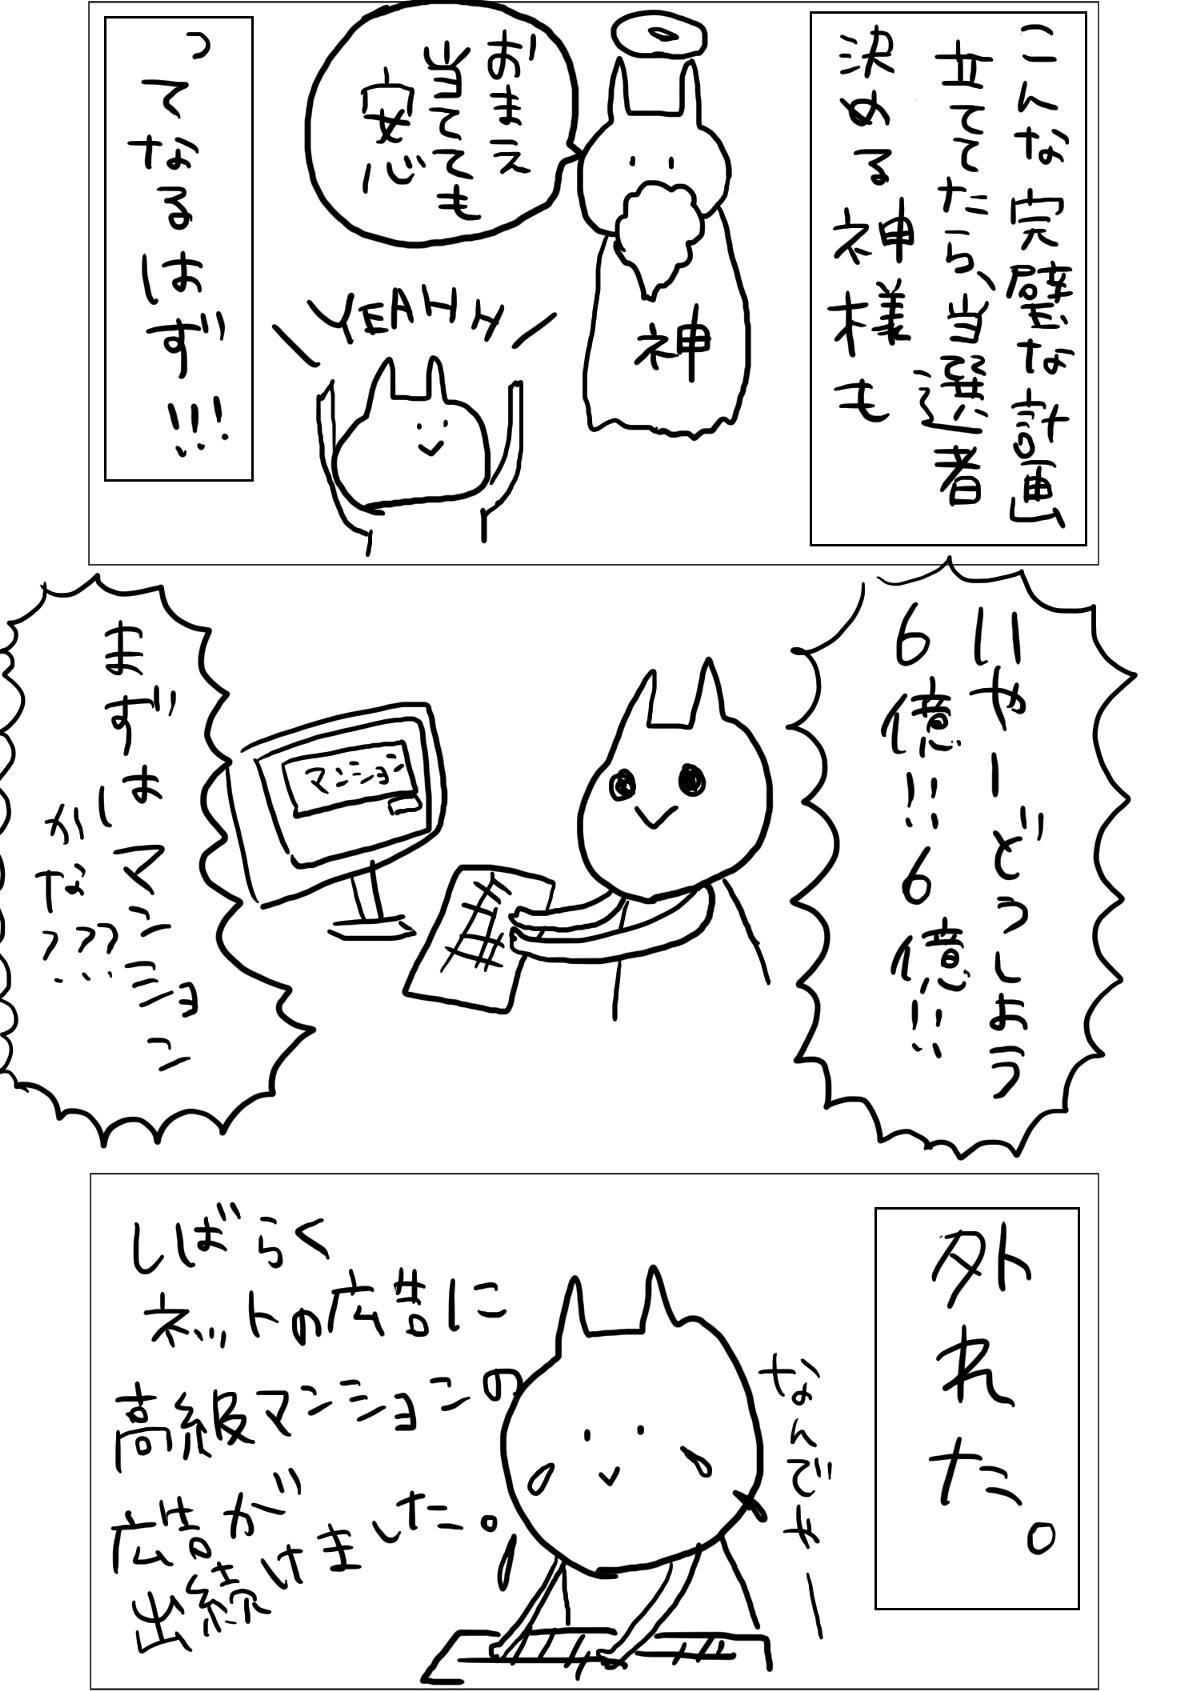 こんな完璧な計画
立ててたら、当選者
決める神様も
おまえ
当てても
安心
神
YEAHH
ってなるはず!!!
いやーどうしよう
6億!!6億!!
マンション
まずはマンション
かな???
外れた。
なんでやー
しばらく
ネットの広告に
高級マンションの
広告が
出続けました。